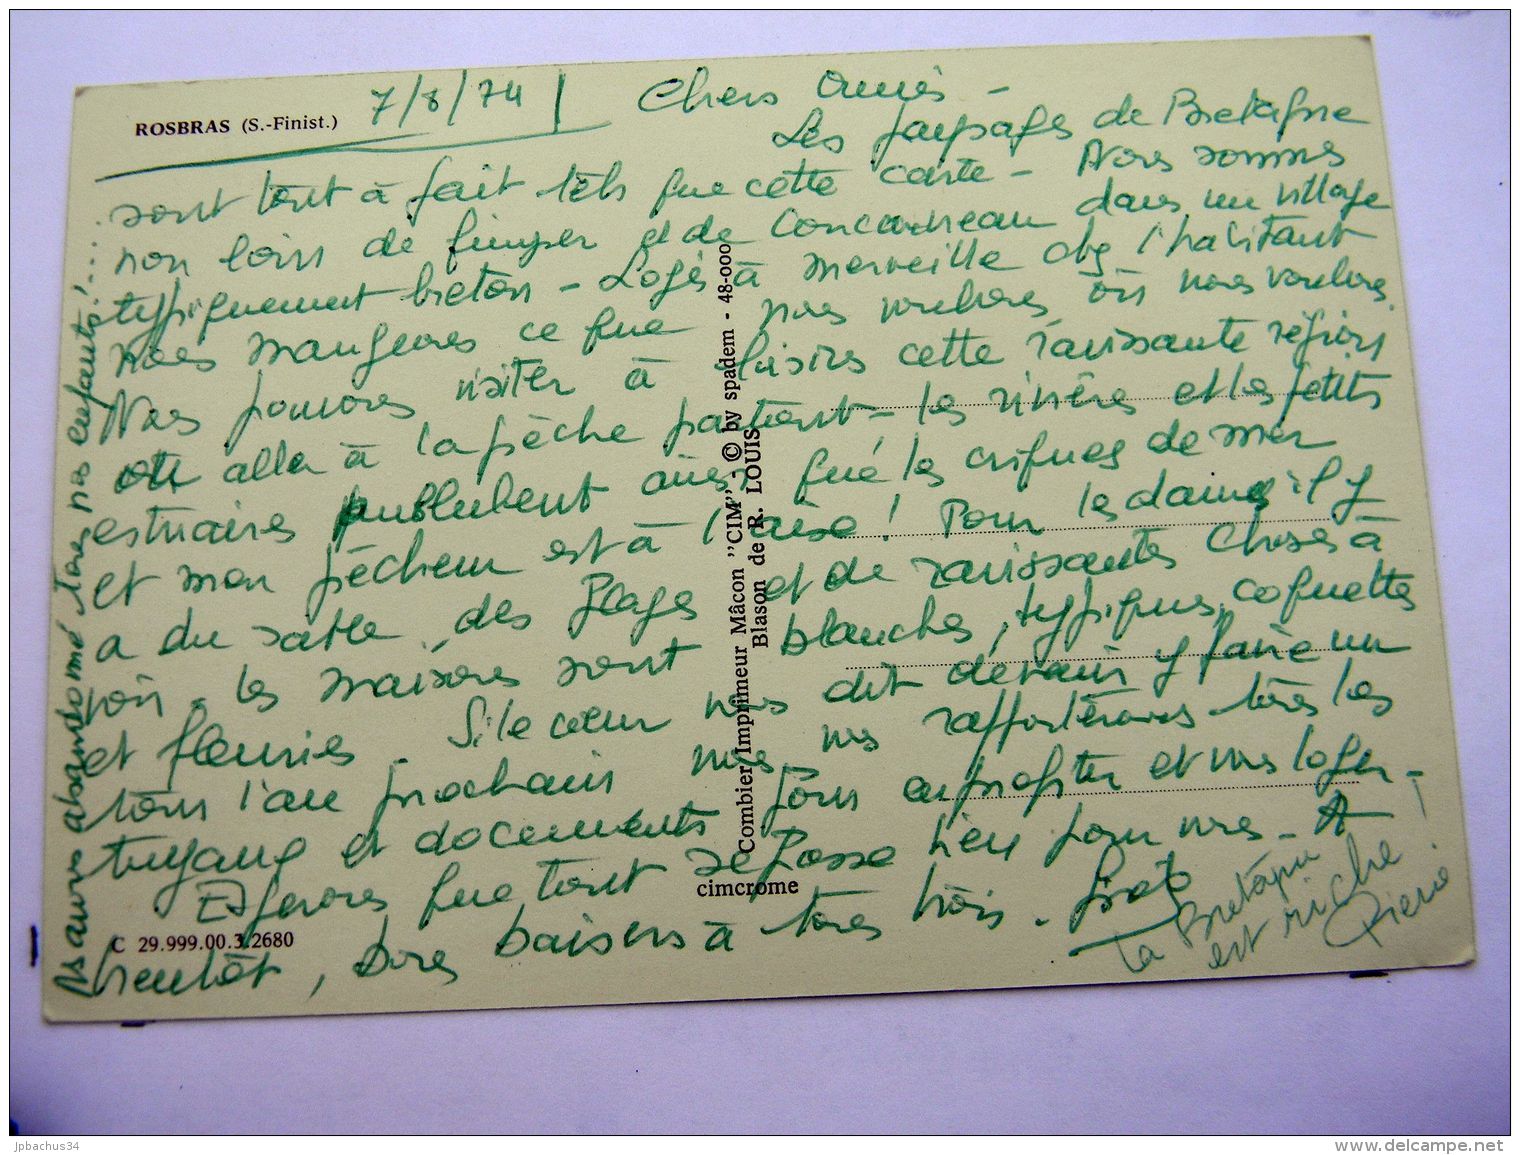 ROSBRAS (S.-Finist.)
7/8/74
Chers Amis -
Les paysages de Bretagne
sont tout à fait tels que cette carte - Nous sommes
non loin de Quimper et de Concarneau dans un village
typiquement breton - Logés à merveille chez l'habitant
nous mangeons ce que nous voulons où nous voulons.
Nous pouvons visiter à loisirs cette ravissante région
ou aller à la pêche partout - les rivières et les petits
estuaires pullulent ainsi que les criques de mer
et mon pêcheur est à l'aise ! Pour les dames il y
a du sable, des plages et de ravissantes choses à
voir. les maisons sont blanches, typiques, coquettes
et fleuries. Si le cœur vous dit de venir y faire un
tour l'an prochain nous vous rapporterons tous les
tuyaux et documents pour en profiter et vous loger -
Espérons que tout se passe bien pour vous - A
bientôt, bons baisers à tous trois.
As avoir abandonné tous nos enfants !....
La Bretagne
est riche !
Pierre.
Combier Imprimeur Mâcon "CIM" - © by spadem - 48-000
Blason de R. LOUIS
cimcrome
C 29.999.00.3.2680
jpbachus34
www.delcampe.net